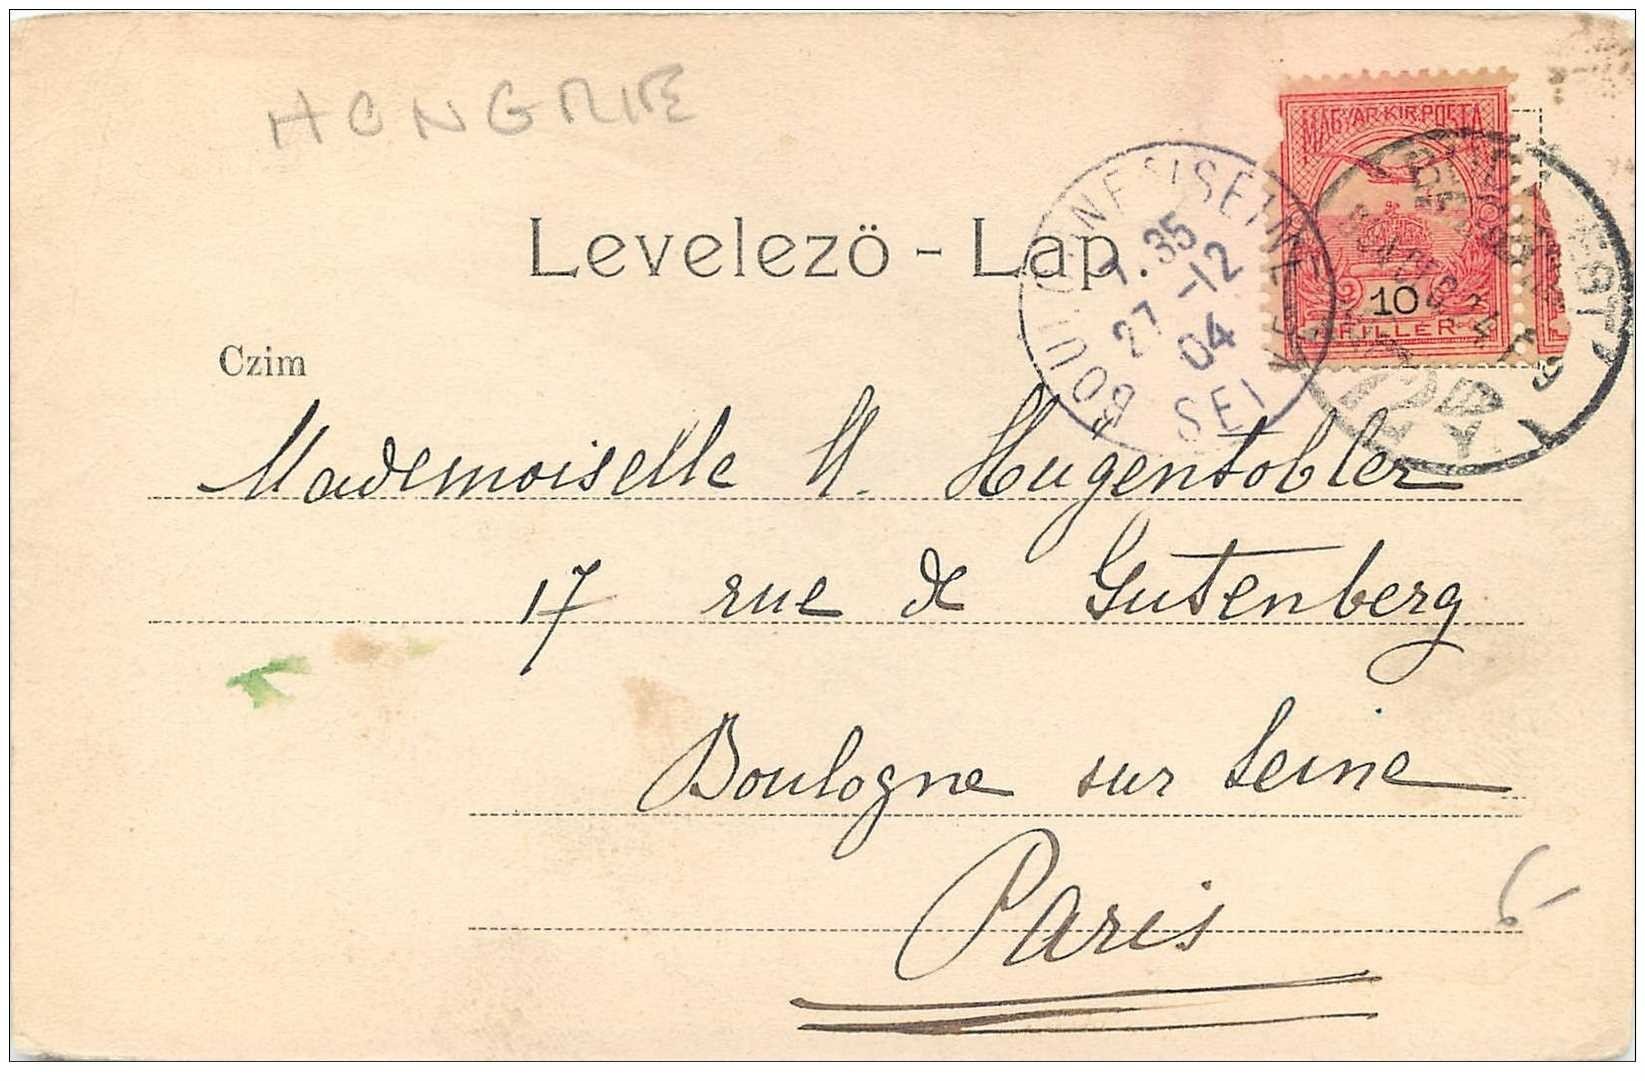 HONGRIE
MAGYAR·KIR·POSTA
10
FILLER
BOULOGNE S/SEINE
7.35
27 -12
04
SEINE
Levelezö - Lap.
Czim
Mademoiselle M. Hugentobler
17 rue de Gutenberg
Boulogne sur Seine
Paris